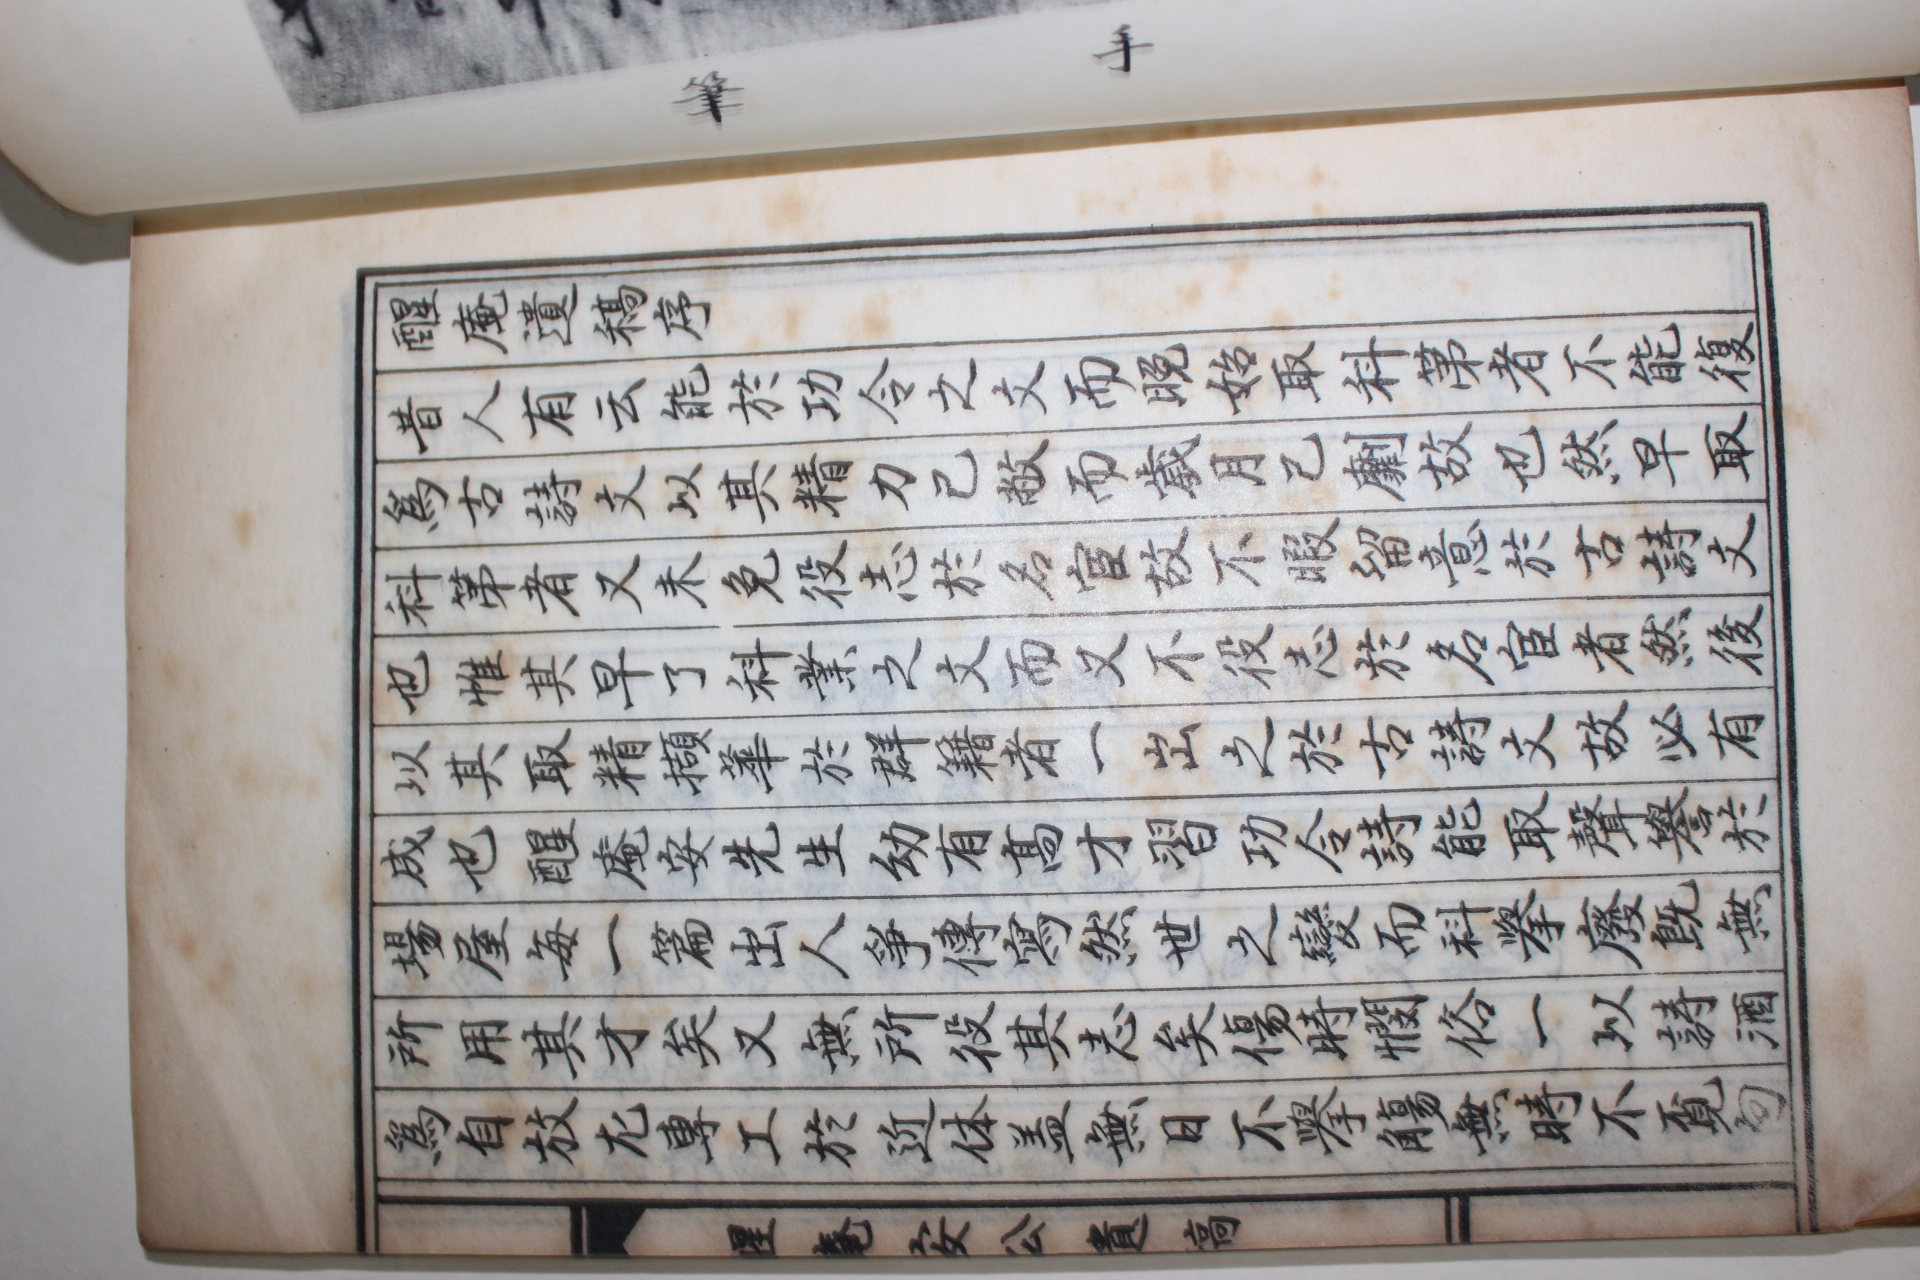 醒庵遺稿序
昔人有云能於功令之文而晩始取科第者不能復
爲古詩文以其精力已敝而歲月已劘故也然早取
科第者又未免役志於名宦故不暇留意於古詩文
也惟其早了科業之文而又不役志於名宦者然後
以其取精擷華於群籍者一出之於古詩文故必有
成也醒庵安先生幼有高才習功令詩能取聲譽於
場屋每一篇出人爭傳寫然世之變而科擧廢旣無
所用其才矣又無所役其志矣傷時憫俗一以詩酒
爲自放尤專工於近体盖無日不擧觴無時不覓句
醒庵安公遺稿
筆
手